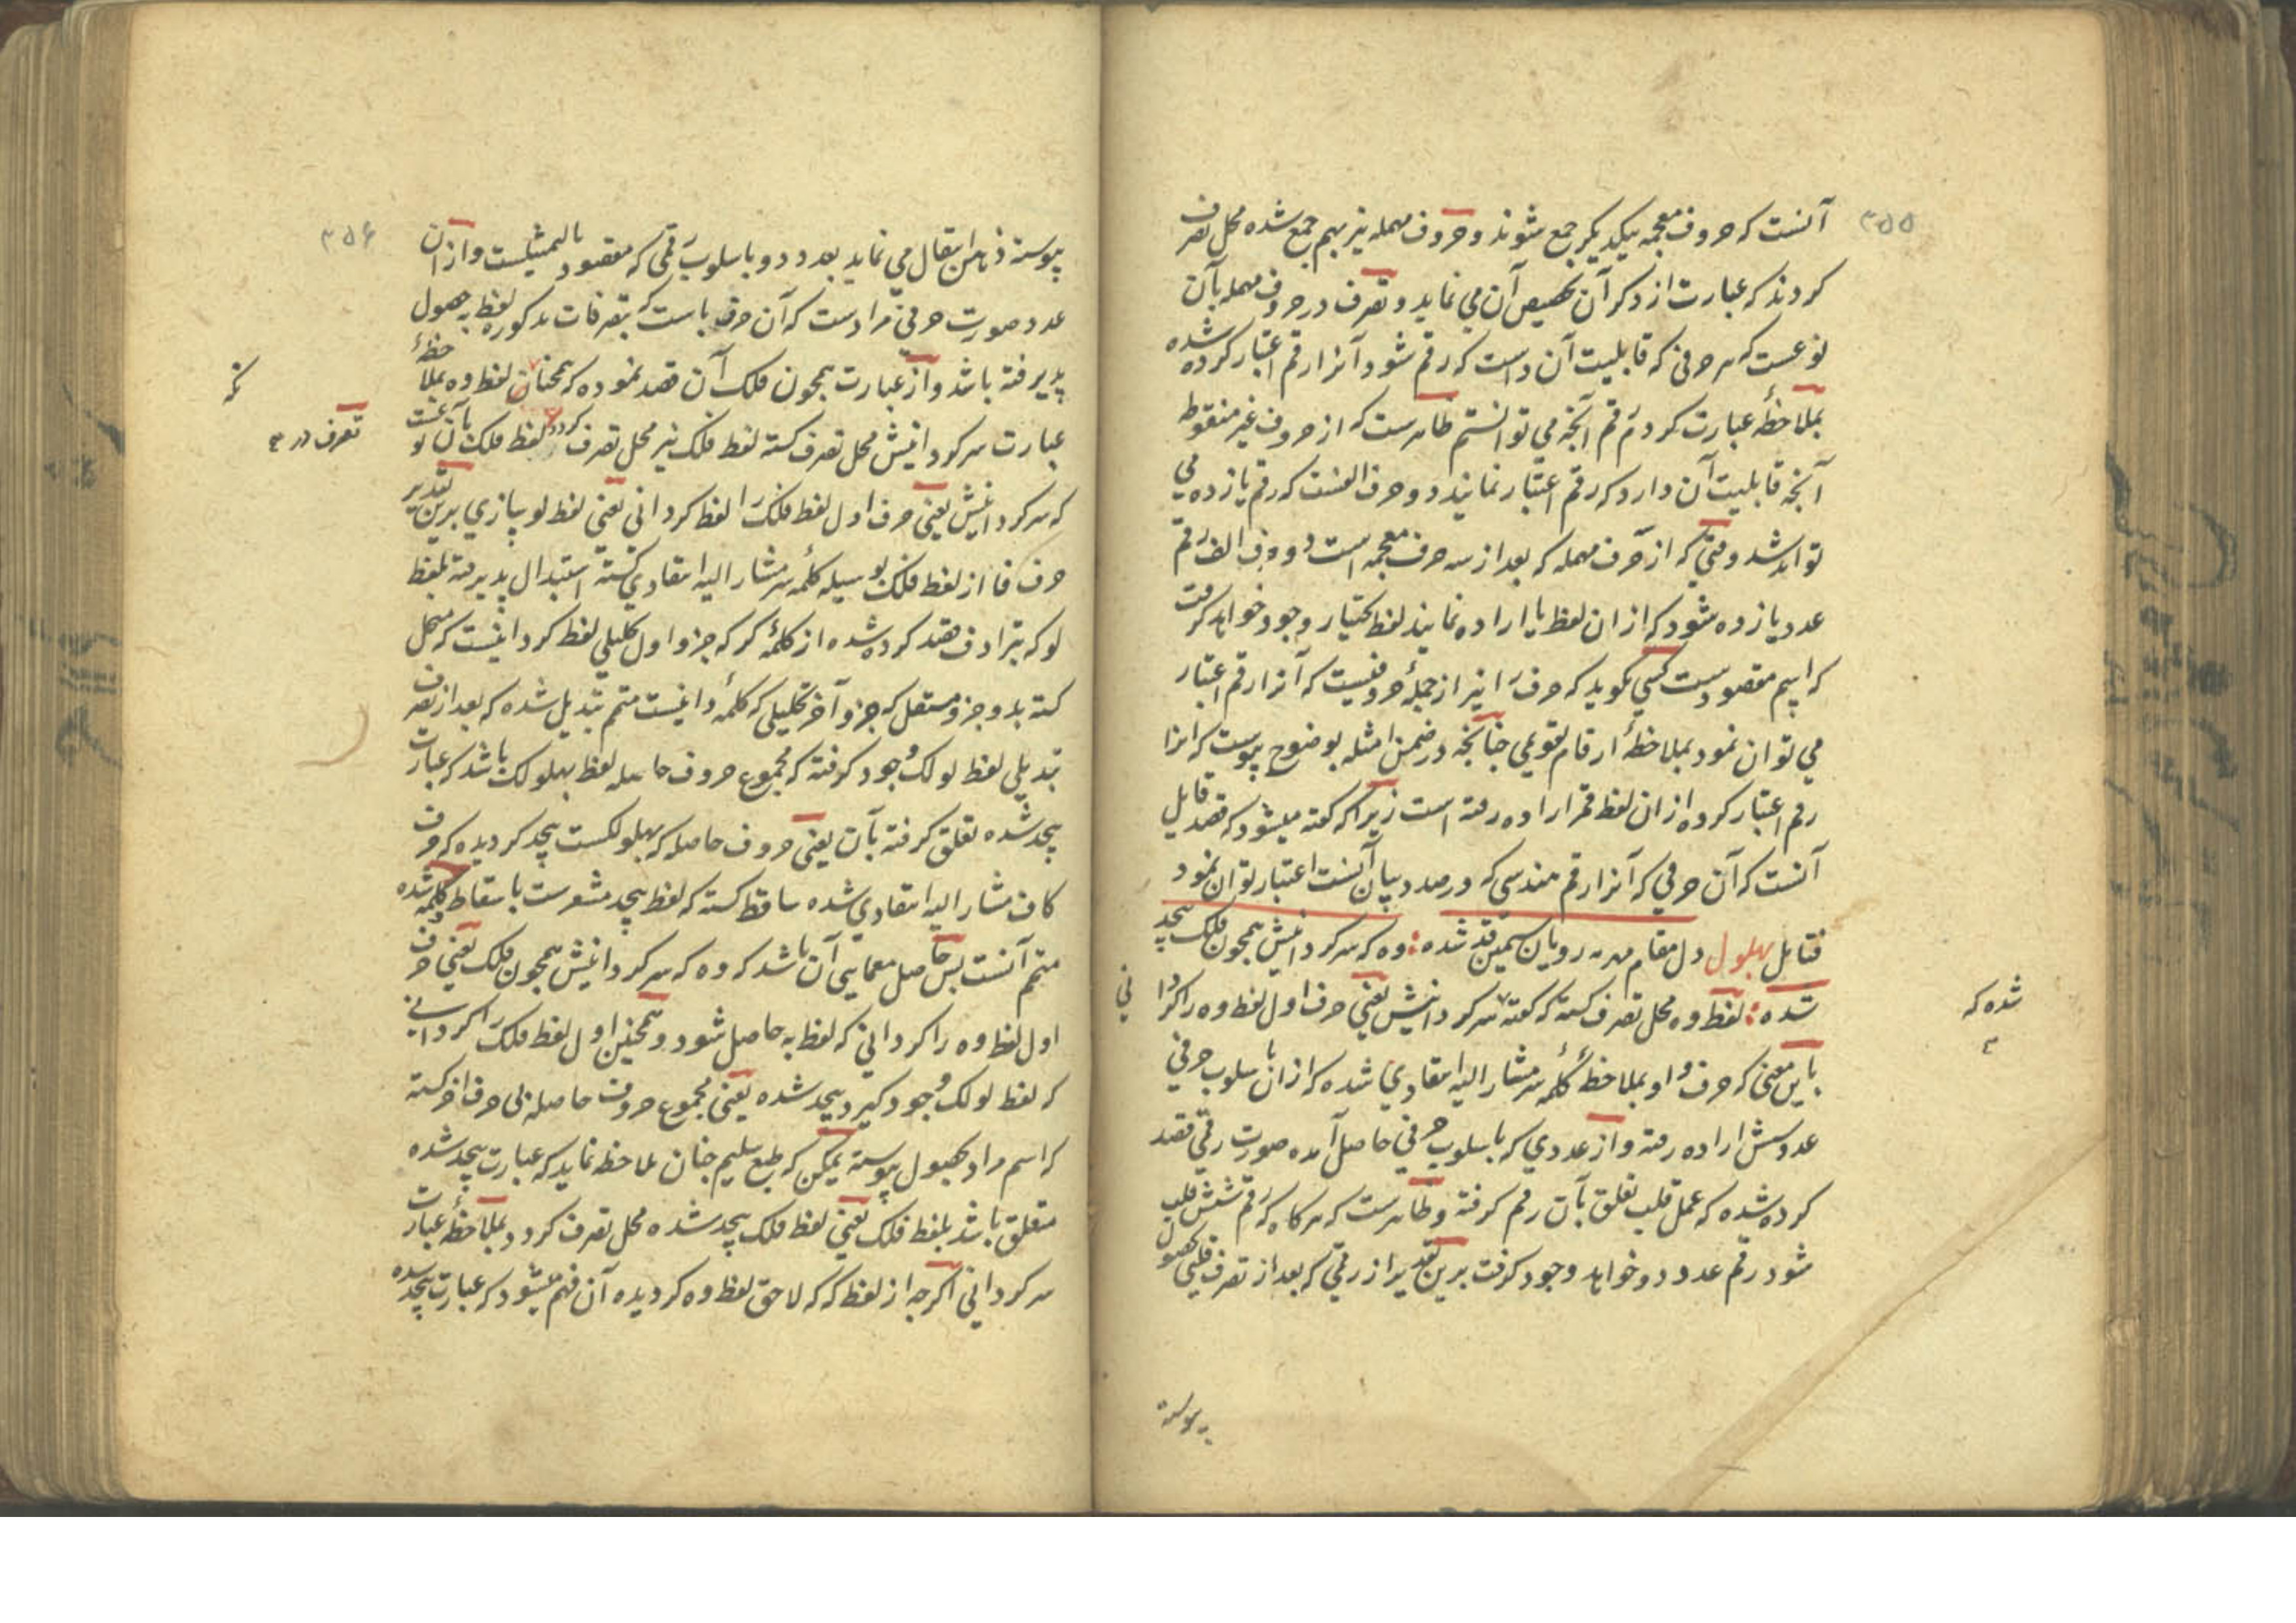 ۳۵۵
آنست که حروف معجمه بیکدیگر جمع شوند و حروف مهمله نیز بهم جمع شده محل تصرف
کردند که عبارت از دکر آن تحصیص آن می نماید و تصرف در حروف مهمله بآن
نوعست که هر حرفی که قابلیت آن داست که رقم شود آنرا رقم اعتبار کرده شده
بملاحظهٔ عبارت کردم رقم آنچه می توانستم ظاهرست که از حروف غیر منقوطه
آنچه قابلیت آن دارد که رقم اعتبار نمایند دو حرف الفست که رقم یازده می
تواند شد وقتی که از حرف مهمله که بعد از سه حرف معجمه است دو حرف الف رقم
عدد یازده شود که از ان لفظ یا اراده نمایند لفظ بختیار وجود خواهد کرفت
که اسم مقصودست کسی نکوید که حرف را نیز از جملهٔ حروفیست که آنرا رقم اعتبار
می توان نمود بملاحظهٔ ارقام تقویمی چنانچه در ضمن امثله بوضوح پیوست که انرا
رقم اعتبار کرده از ان لفظ قمر اراده رفته است زیرا که کفته میشود که قصد قایل
آنست که آن حرفی که آنرا رقم هندسی که در صدد بیان آنست اعتبار توان نمود
فتایل بهلول دل مقام مهر رویان سیمین قد شده : وه که سرکردانیش همچون فلک بیحد
شده : لفظ وه محل تصرف کشته که کفته سرکردانیش یعنی حرف اول لفظ وه را کردا
نی
شده که
باین معنی که حرف واو بملاحظهٔ کلمهٔ سر مشار الیه انتقادی شده که از ان باسلوب حرفی
عدد شش اراده رفته و از عددی که باسلوب حرفی حاصل آمده صورت رقمی قصد
کرده شده که عمل قلب تعلق بآن رقم کرفته و ظاهرست که هرکاه که رقم شش قلب
شود رقم عدد دو خواهد وجود کرفت برین تقدیر از رقمی که بعد از تصرف قلبی بحصول
پیوسته
۳۵۶
پیوسته ذهن انتقال می نماید بعدد دو و باسلوب رقمی که مقصود بالتمثیلست و از ان
عدد صورت حرفی مرادست که آن حرف باست که بتصرفات مذکوره لفظ به حصول
پذیرفته باشد و از عبارت همچون فلک آن قصد نموده که همچنان لفظ وه بملاحظهٔ
که
عبارت سرکردانیش محل تصرف کشته لفظ فلک نیز محل تصرف کردد لفظ فلک بآن نوعست
تصرف در
که سرکردانیش یعنی حرف اول لفظ فلک را لفظ کردانی یعنی لفظ لو سازی برین تقدیر
حرف فا از لفظ فلک بوسیله کلمهٔ سر مشار الیه انتقادی کشته استبدال پذیرفته بلفظ
لو که بترادف قصد کرده شده از کلمهٔ کر که جزو اول تحلیلی لفظ کردانیست که محل
کشته بدو جزو مستقل که جزو آخر تحلیلی که کلمهٔ دانیست متمم تبدیل شده که بعد از تصرف
تبدیلی لفظ لولک وجود کرفته که مجموع حروف حاصله لفظ بهلولک باشد که عبارت
بیحد شده تعلق کرفته بآن یعنی حروف حاصله که بهلولکست بیحد کردیده که حرف
کاف مشار الیه انتقادی شده ساقط کشته که لفظ بیحد مشعرست باسقاط و کلمهٔ شده
متمم آنست پس حاصل معمایی آن باشد که وه که سرکردانیش همچون فلک یعنی حرف
اول لفظ وه را کردانی که لفظ به حاصل شود و همچنین اول لفظ فلک را کردانی
که لفظ لولک وجود کیرد و بیحد شده یعنی مجموع حروف حاصله بی حرف اخر کشته
که اسم مراد بحصول پیوسته یمکن که طبع سلیم چنان ملاحظه نماید که عبارت بیحد شده
متعلق باشد بلفظ فلک یعنی لفظ فلک بیحد شده محل تصرف کردد و بملاحظهٔ عبارت
سرکردانی اکرچه از لفظ که که لاحق لفظ وه کردیده آن فهم میشود که عبارت بیحد شده